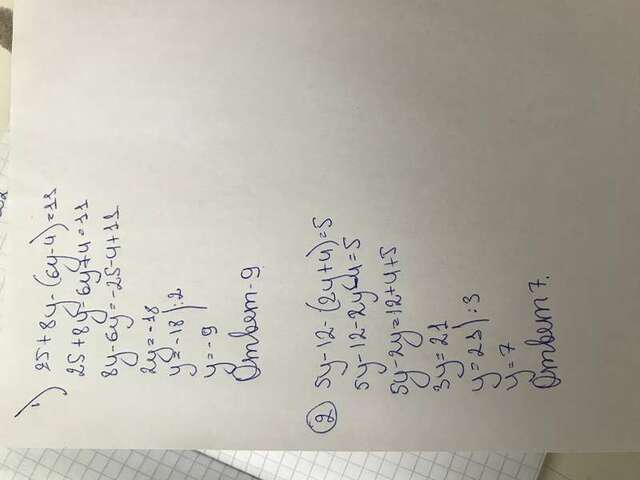 1) 25+8y-(6y-4)=11
25+8y-6y+4=11
8y-6y=-25-4+11
2y=-18
y=-18|:2
y=-9
Ответ-9
2 5y-12-(2y+4)=5
5y-12-2y-4=5
5y-2y=12+4+5
3y=21
y=21|:3
y=7
Ответ 7.